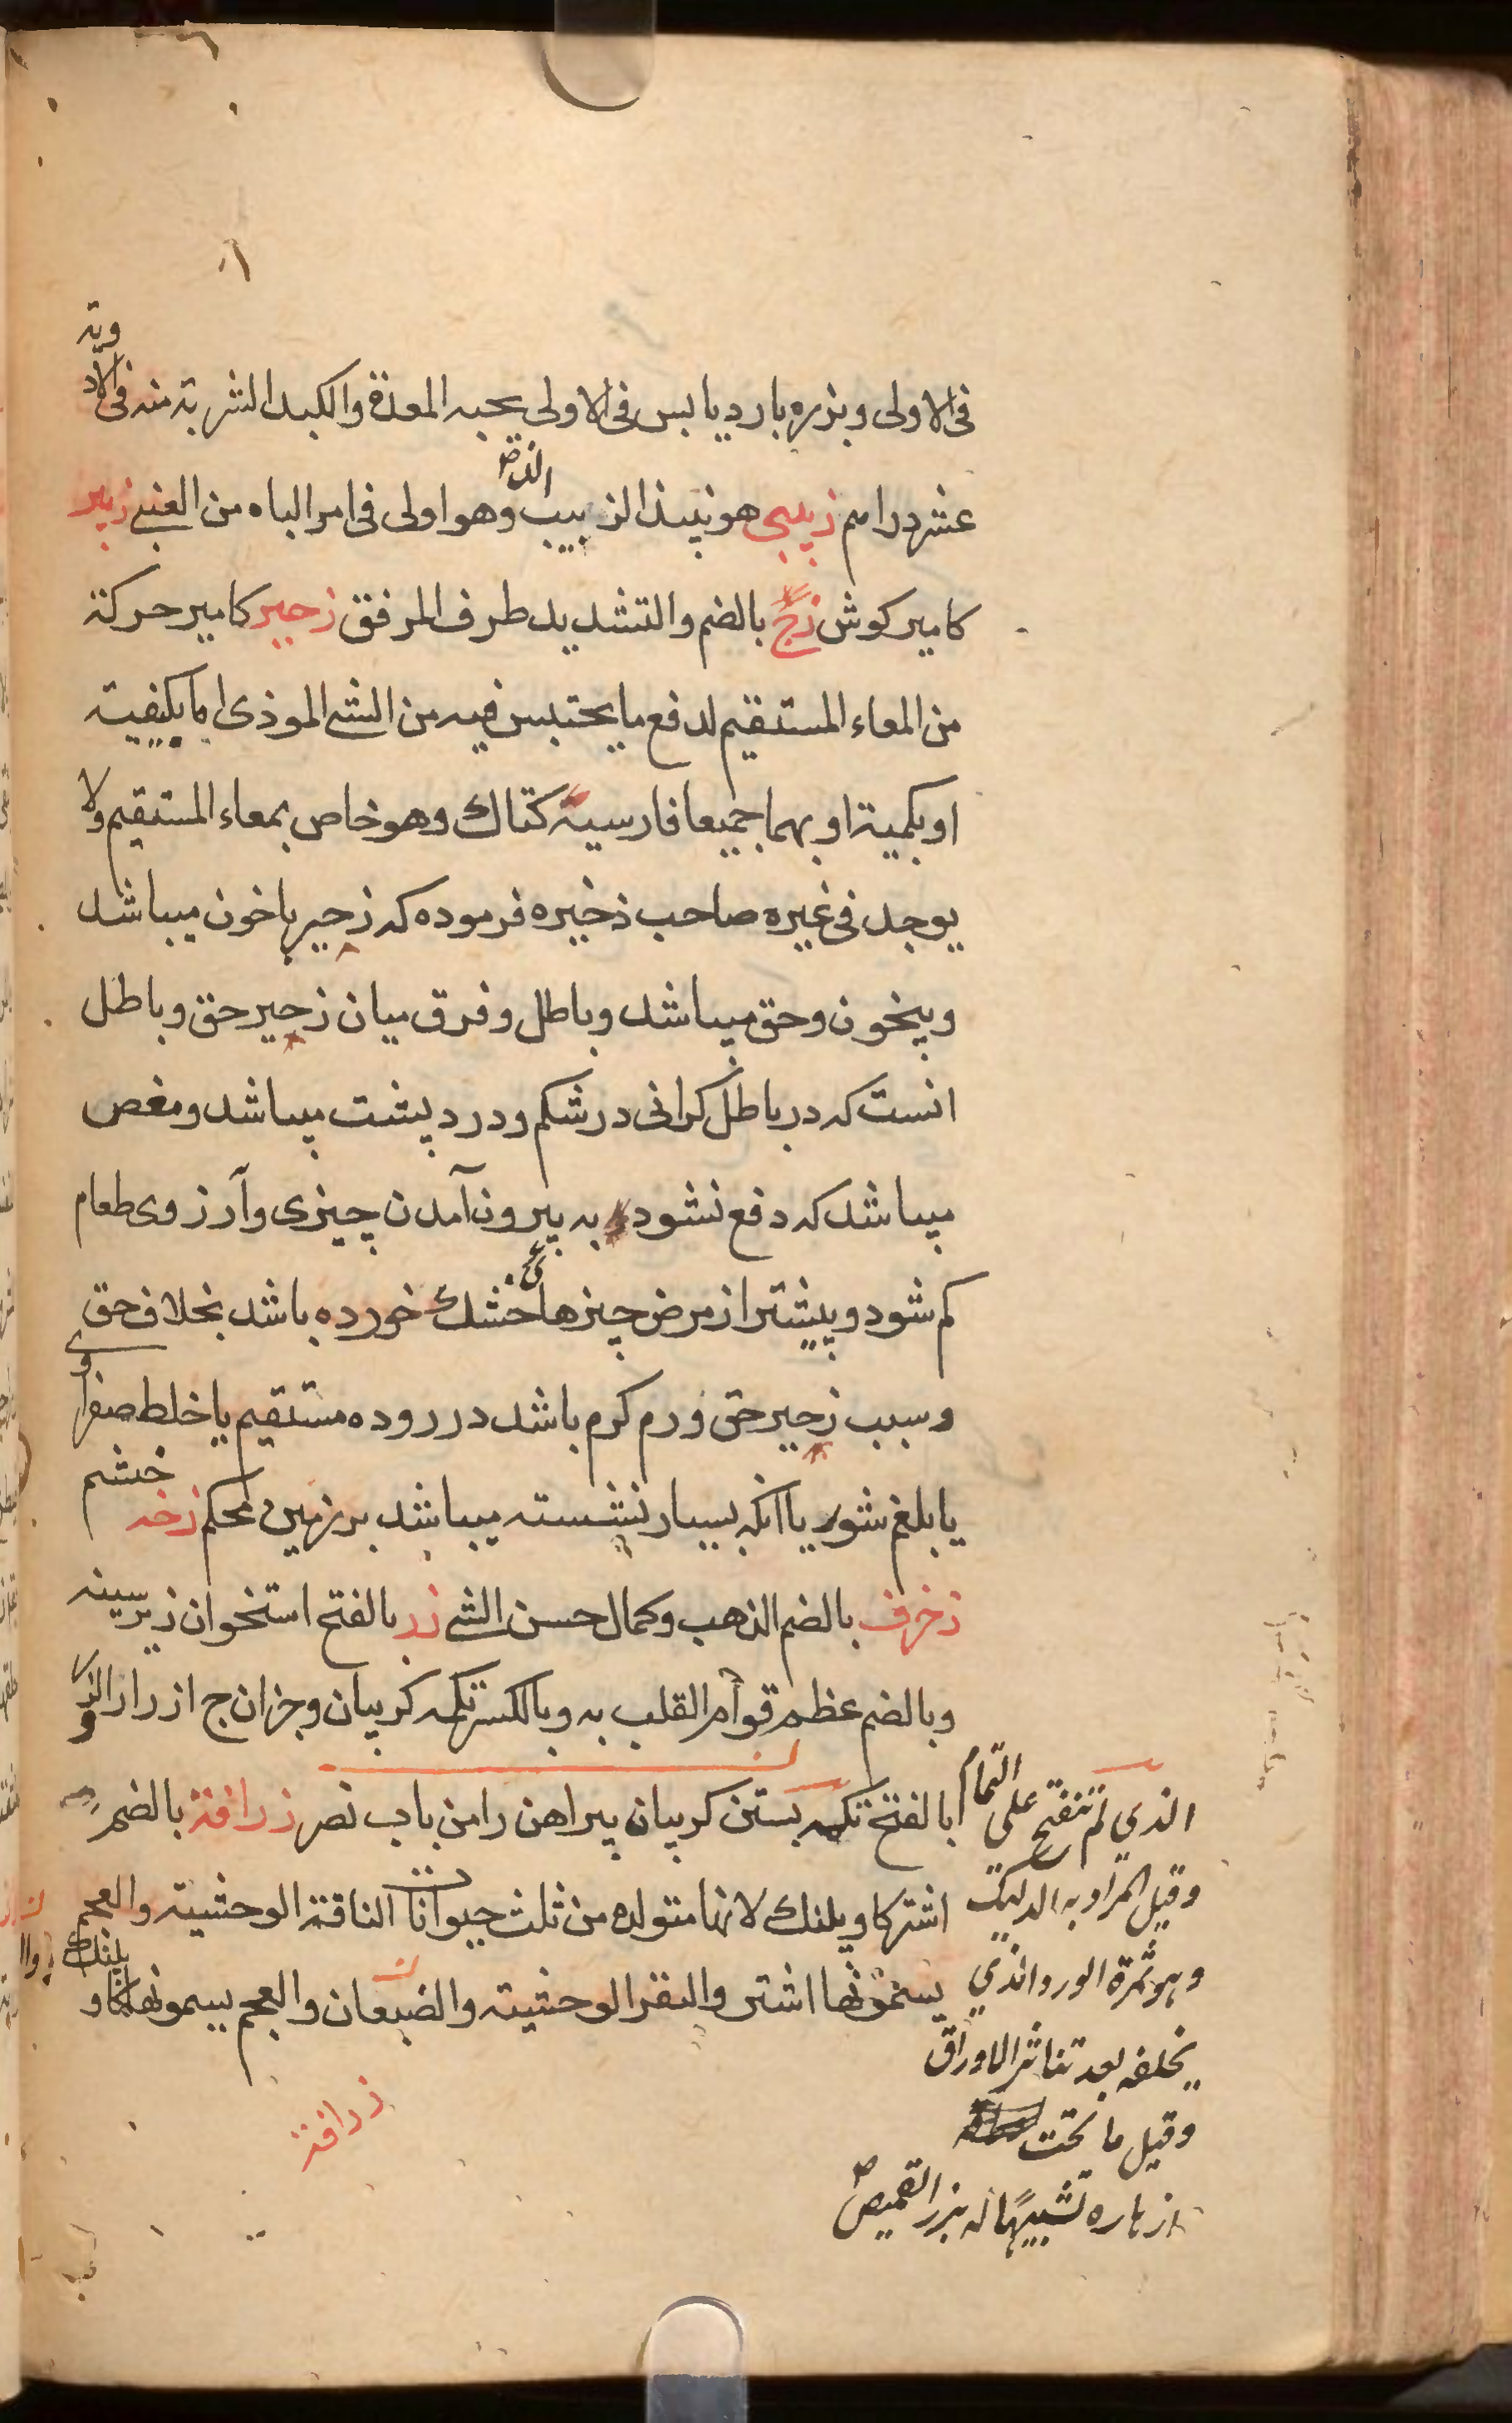 فی الاولی وبزره بارد یابس فی الاولی یحبه المعدة والکبد الشربة منه فی الادویة
عشر دراهم زبیبی هو نبیذ الزبیب وهو اولی فی امر الباه من العنبی زبیر
کامیر کوش زج بالضم والتشدید طرف المرفق زحیر کامیر حرکة
من المعاء المستقیم لدفع ما یحتبس فیه من الشی الموذی اما بکیفیته
او بکمیته او بهما جمیعا فارسیته کتاك وهو خاص بمعاء المستقیم ولا
یوجد فی غیره صاحب ذخیره فرموده که زحیر باخون میباشد
وبیخون وحق میباشد وباطل وفرق میان زحیر حق وباطل
انست که در باطل کرانی در شکم ودرد پشت میباشد ومغص
میباشد که دفع نشود به بیرون آمدن چیزی وآرزوی طعام
کم شود وپیشتر از مرض چیزهای خشك خورده باشد بخلاف حق
وسبب زحیر حق ورم کرم باشد در روده مستقیم یا خلط صفراوی
یا بلغم شور یا آنکه بسیار نشسته میباشد بر زمین محکم زخه خشم
زخرف بالضم الذهب وکمال حسن الشی زر بالفتح استخوان زیر سینه
وبالضم عظم قوام القلب به وبالکسر تکمه کریبان وجزان ج ازرار الذی
بالفتح تکمه بستن کریبان پیراهن را من باب نصر زرافة بالضم
اشترکاوپلنك لانها متولده من ثلث حیوانات الناقة الوحشیة والعجم
یسمونها اشتر والبقر الوحشیة والضبعان والعجم یسمونها کاو پلنك
زرافة
الذی لم تنفتح علی التمام
وقیل المراد به الدلیك
وهو ثمرة الورد الذی
یخلفه بعد تناثر الاوراق
وقیل ما تحت
ازهاره تشبیها له بزر القمیص